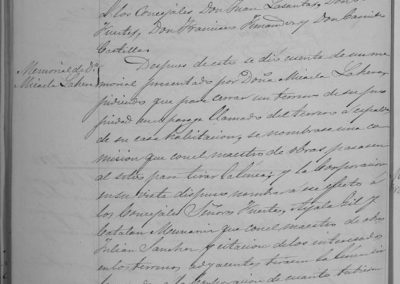 á los Concejales Don Juan Lasanta, Don
Fuertes, Don Francisco Fernandez y Don
Castellar
Memorial de Dª
Micaela Laher
Despues de esto se dió cuenta de un me
morial presentado por Doña Micaela Laher
pidiendo que para cerrar un terreno de su pro
piedad en el parage llamado del terrero á espaldas
de su casa habitacion, se nombrase una co
mision que con el maestro de obras pasasen
al sitio para tirar la linea; y la Corporacion
en su vista dispuso nombrar á ese efecto á
los Concejales Señores Fuertes, Ayala Gil y
Catalan que con el maestro de obras
Julian Sanchez, y citacion de los interesados
en los terrenos adyacentes tiraren la linea
de cuanto